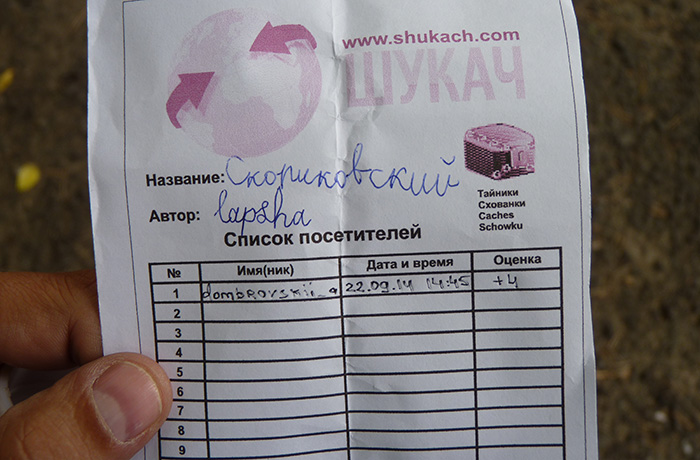 www.shukach.com
ШУКАЧ
Название: Скориковский
Автор: lapsha
Тайники
Схованки
Caches
Schowku
Список посетителей
№ Имя(ник) Дата и время Оценка
1 dombrovskii_a 22.09.14 14:45 +4
2
3
4
5
6
7
8
9